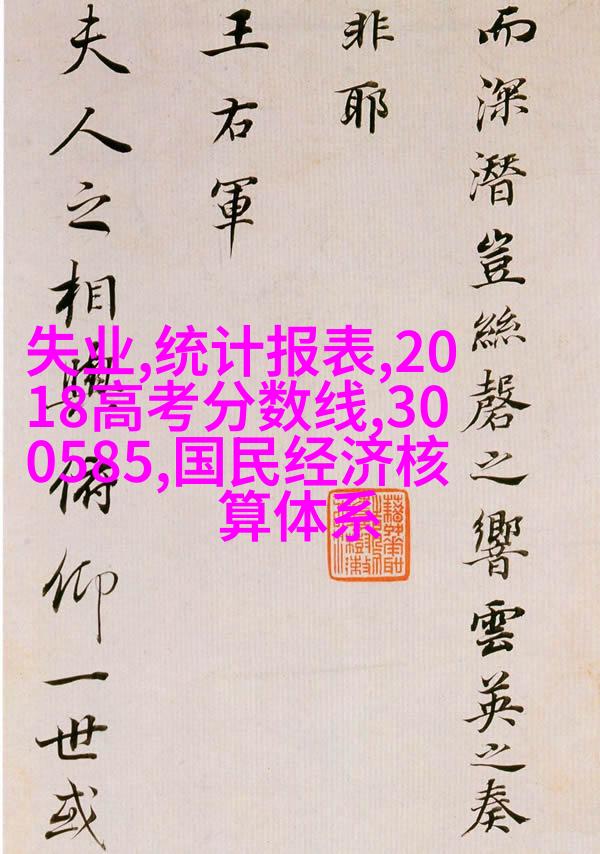 而深潛豈絲磬之響雲英之奏
非耶
王右軍
夫人之相與俯仰一世或
失业,统计报表,20
18高考分数线,30
0585,国民经济核
算体系